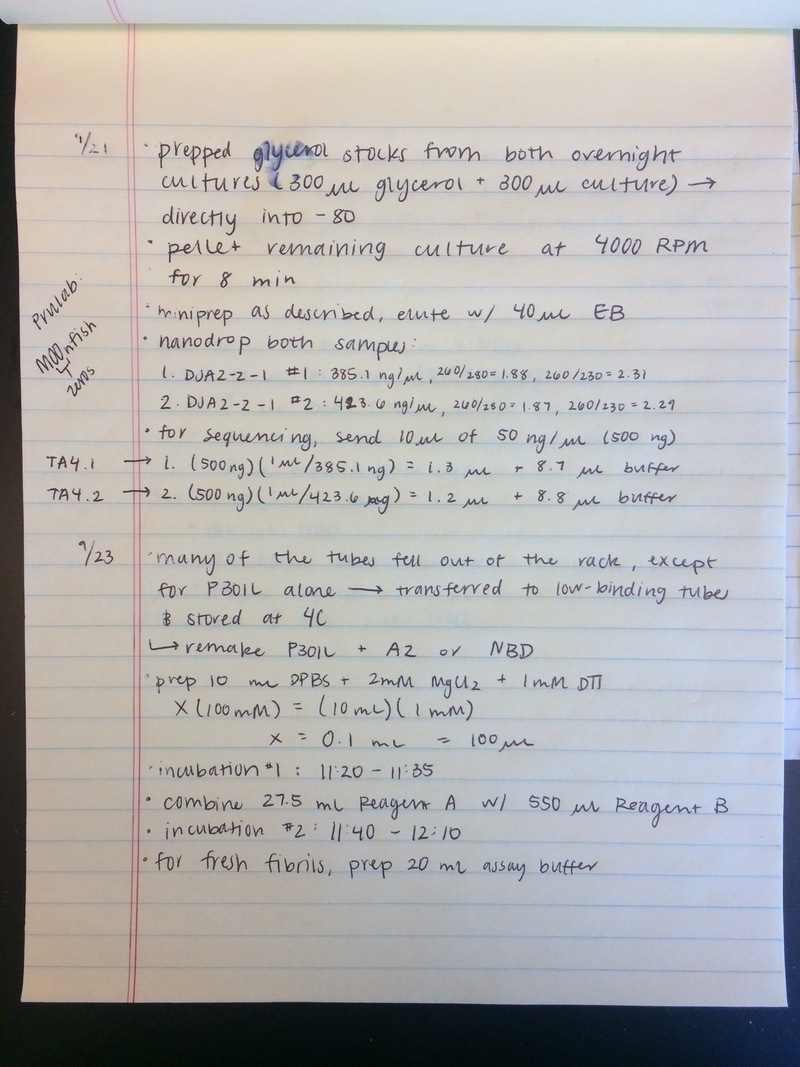 9/21
· prepped glycerol stocks from both overnight
cultures (300 µL glycerol + 300 µL culture) →
directly into -80
· pellet remaining culture at 4000 RPM
for 8 min
Prulab:
M00nfish
zeros
· miniprep as described, elute w/ 40 µL EB
· nanodrop both samples:
1. DJA2-2-1 #1 : 385.1 ng/µL, 260/280 = 1.88, 260/230 = 2.31
2. DJA2-2-1 #2 : 423.6 ng/µL, 260/280 = 1.87, 260/230 = 2.29
· for sequencing, send 10 µL of 50 ng/µL (500 ng)
TA4.1 → 1. (500 ng)(1 µL/385.1 ng) = 1.3 µL + 8.7 µL buffer
TA4.2 → 2. (500 ng)(1 µL/423.6 ng) = 1.2 µL + 8.8 µL buffer
9/23
· many of the tubes fell out of the rack, except
for P301L alone → transferred to low-binding tubes
& stored at 4C
↳ remake P301L + A2 or NBD
· prep 10 mL DPBS + 2mM MgCl2 + 1mM DTT
X (100 mM) = (10 mL)(1 mM)
x = 0.1 mL = 100 µL
· incubation #1 : 11:20 - 11:35
· combine 27.5 mL Reagent A w/ 550 µL Reagent B
· incubation #2 : 11:40 - 12:10
· for fresh fibrils, prep 20 mL assay buffer